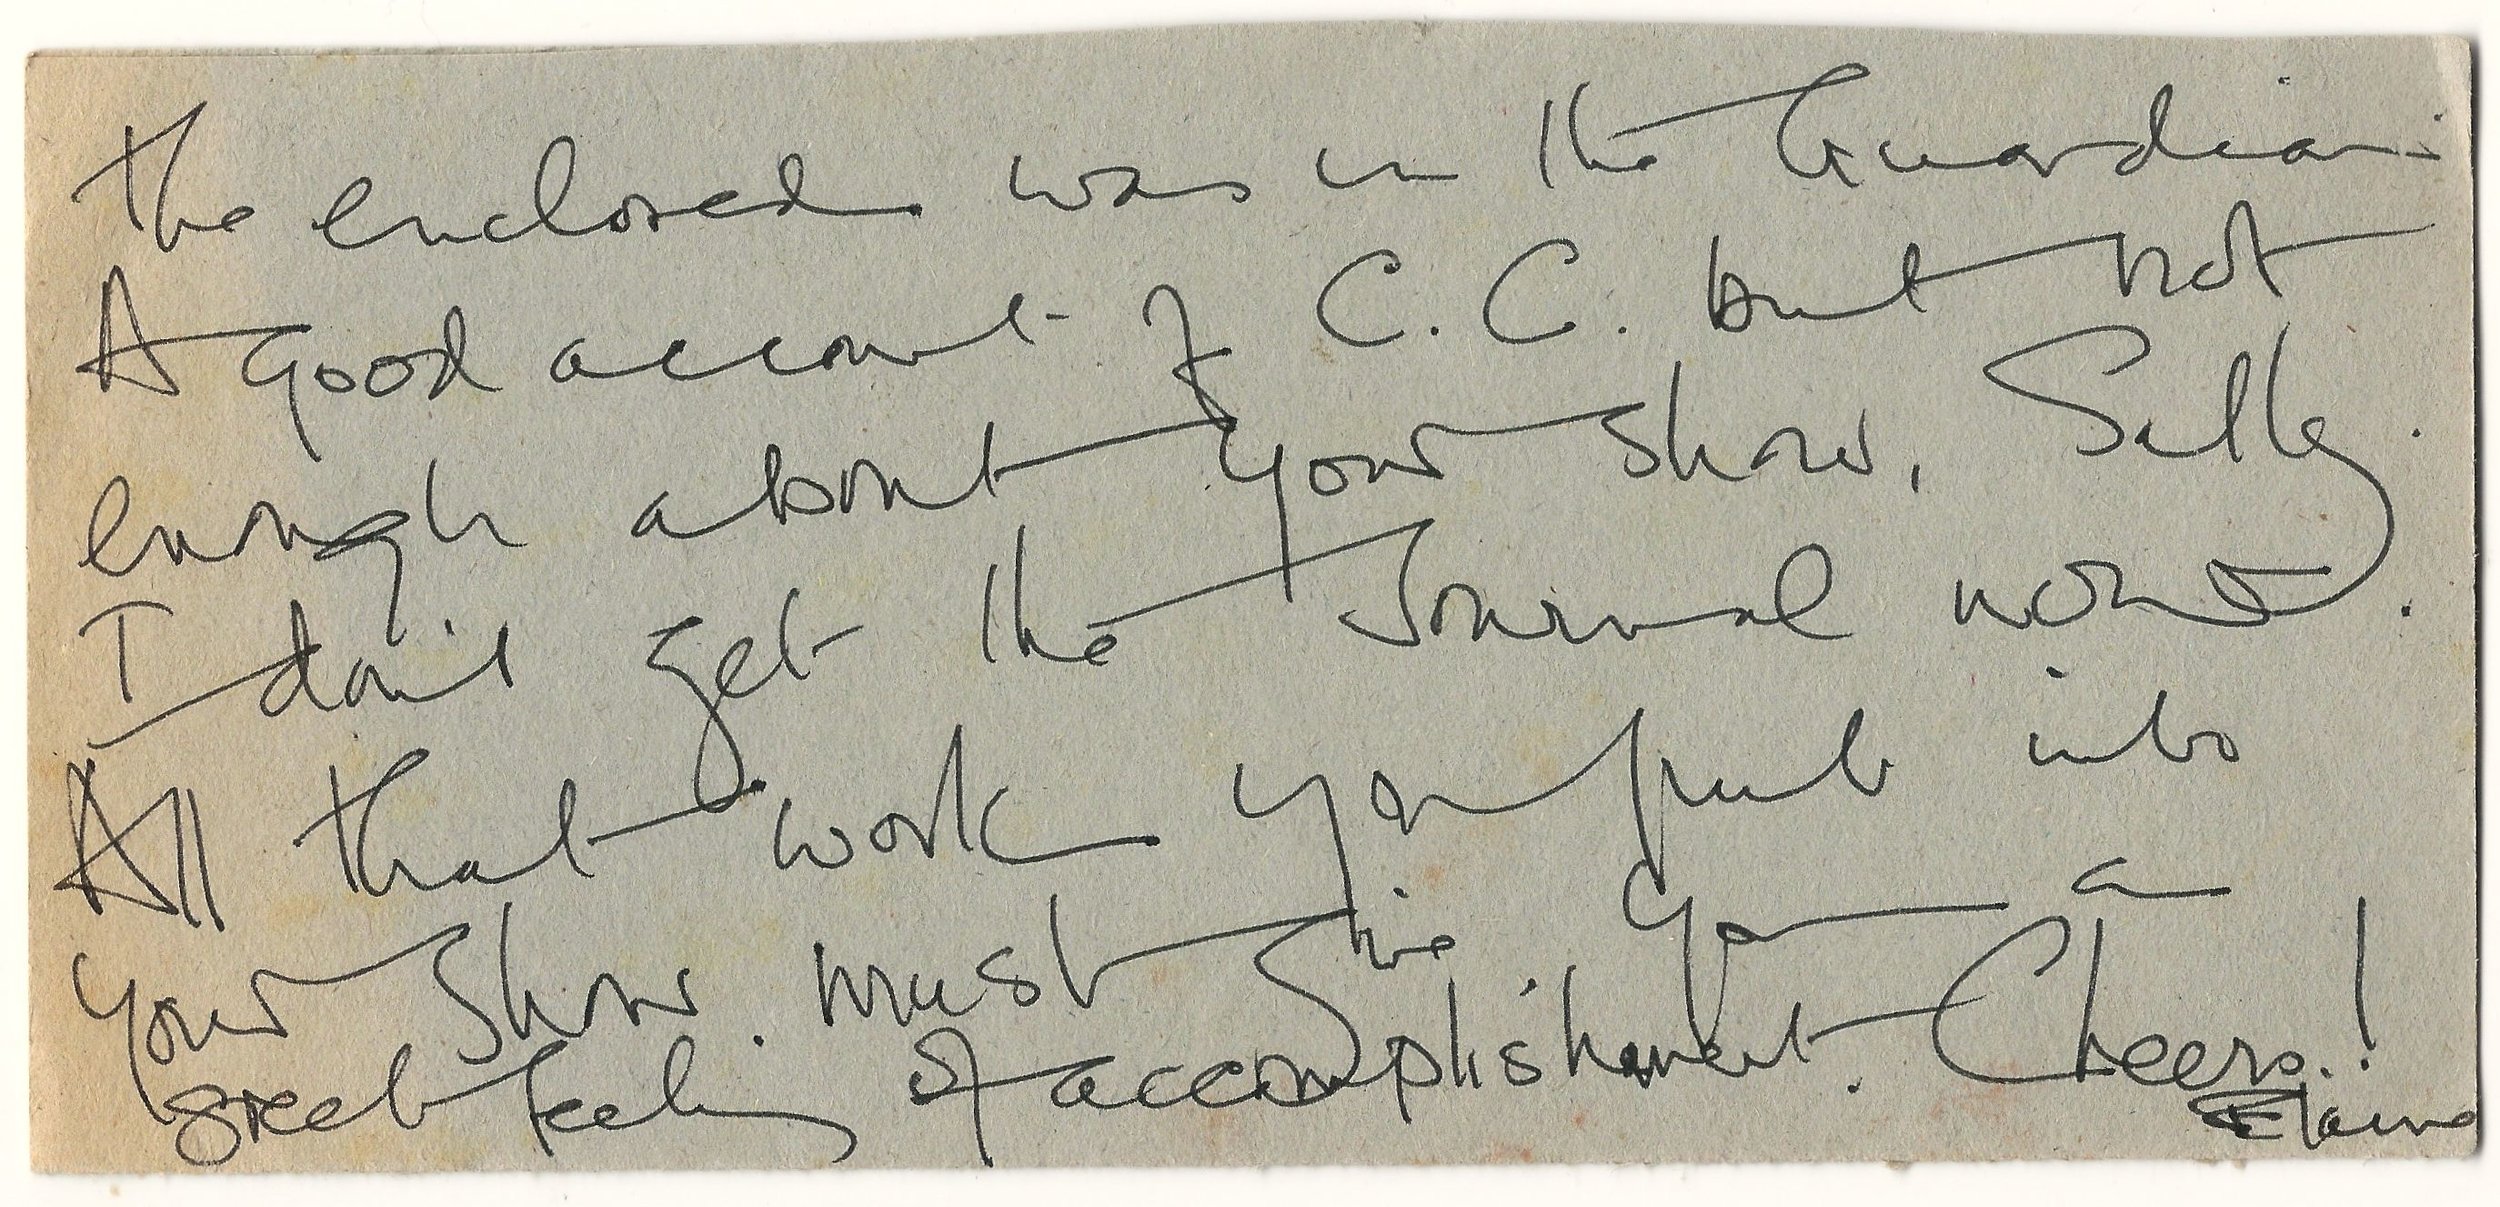 The enclosed was in the Guardian.
A good account of C.C. but not
enough about your show, Sally.
I don't get the Journal now.
All that work you put into
your show must give you a
great feeling of accomplishment. Cheers!
Elaine